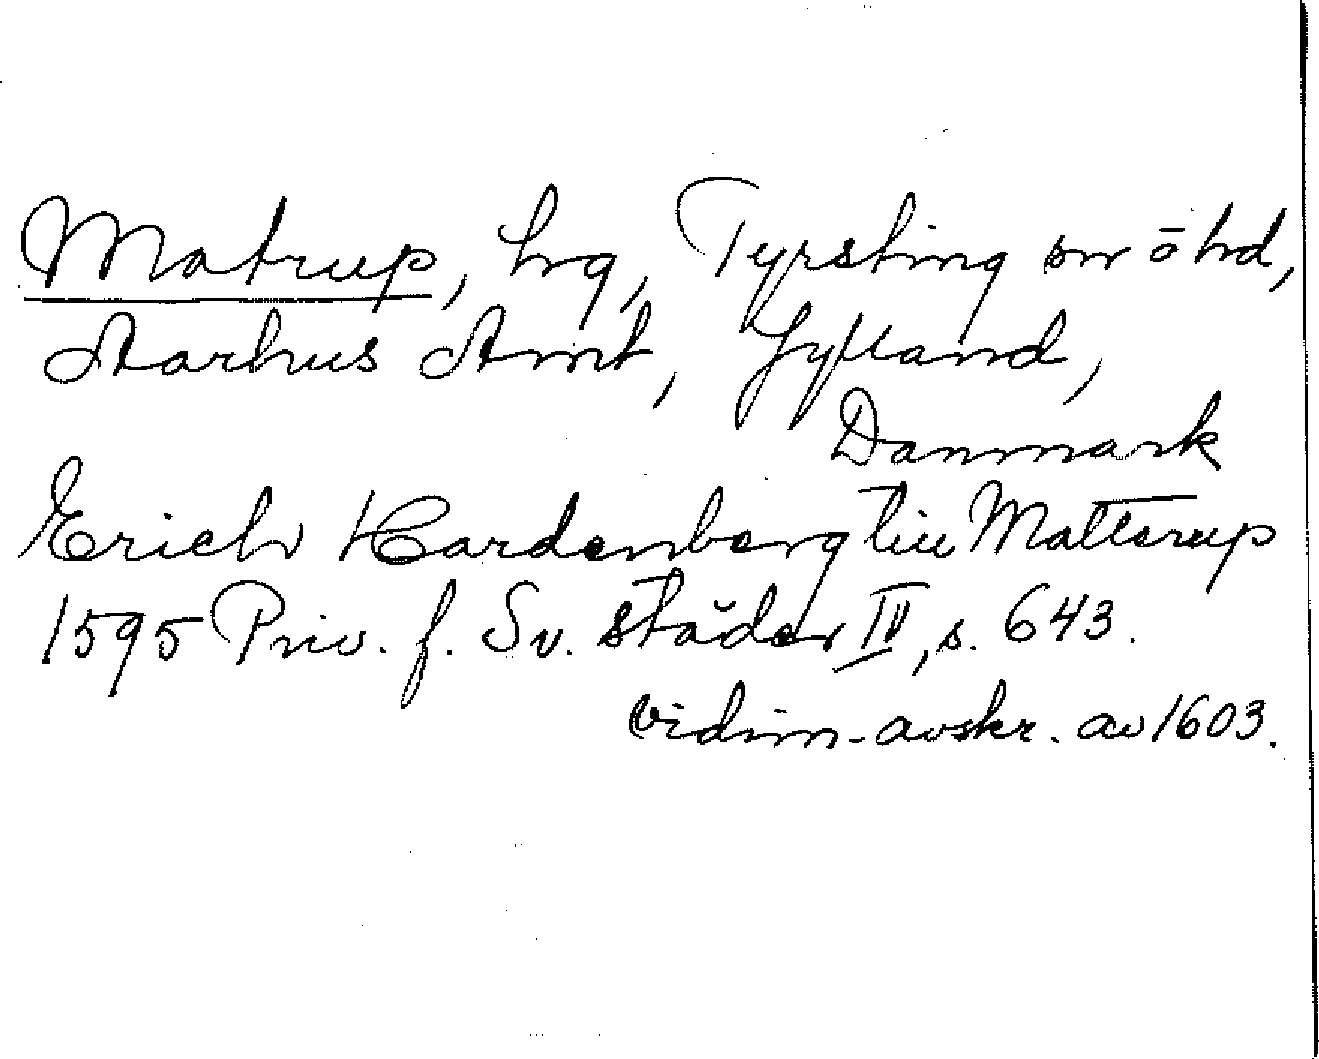 Matrup, hrg, Tyrsting sn o hd,
Aarhus Amt, Jylland,
Danmark
Erich Hardenberg till Matterup
1595 Priv. f. Sv. städer IV, s. 643.
vidim. avskr. av 1603.